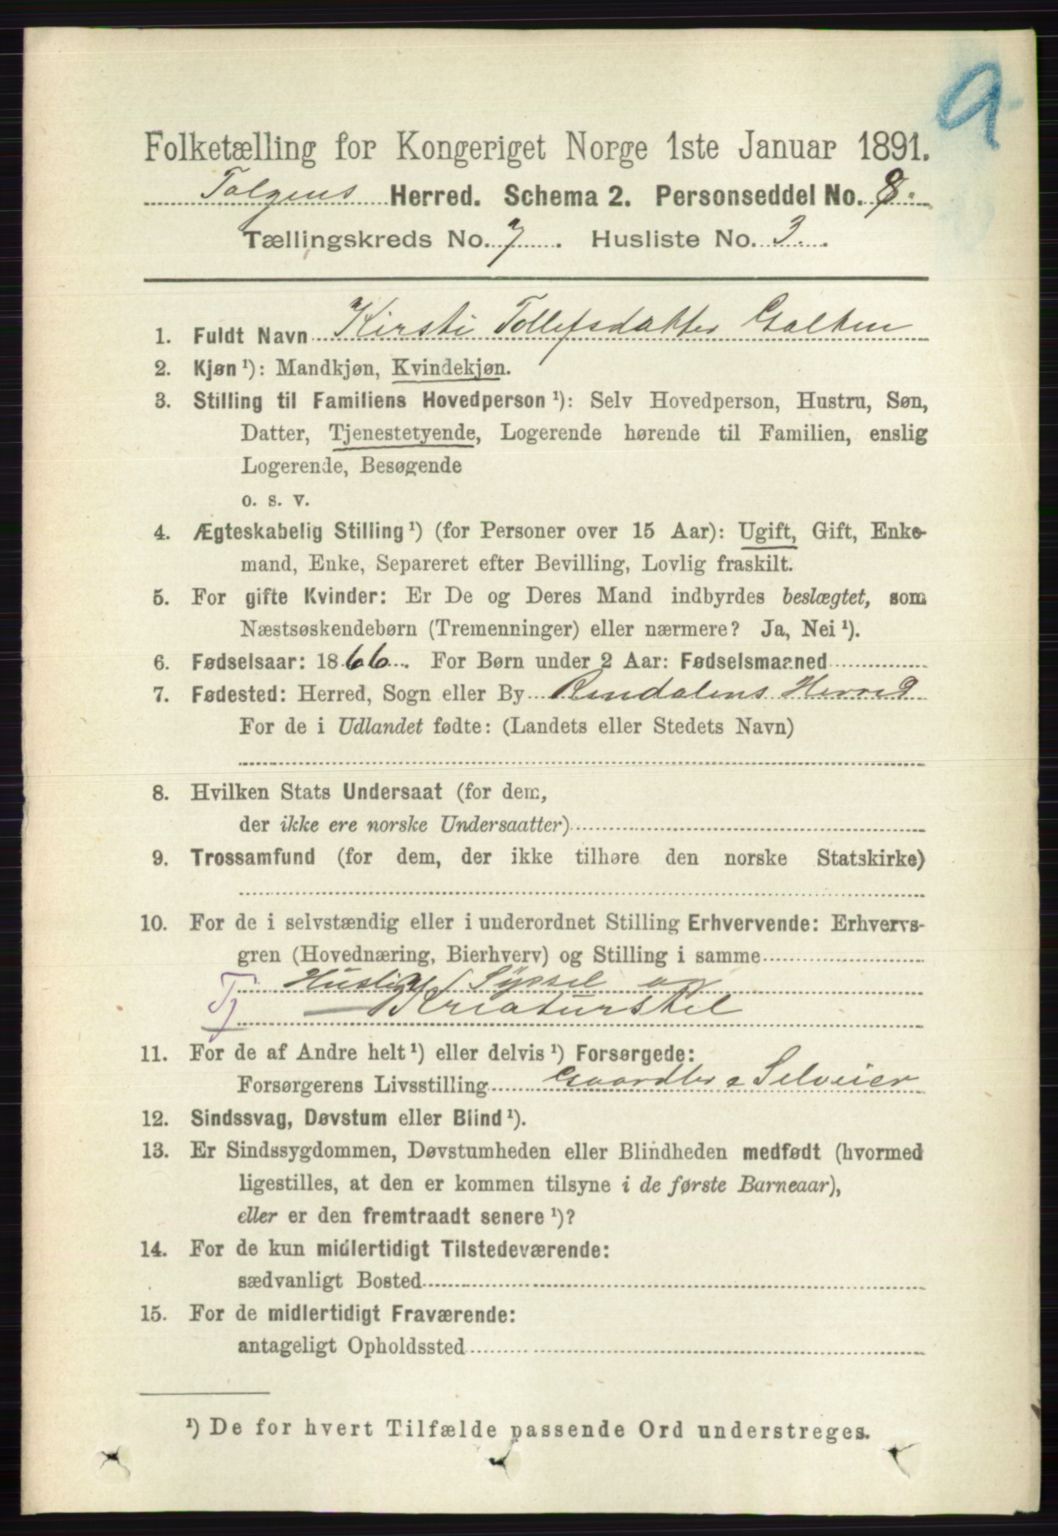 9
Folketælling for Kongeriget Norge 1ste Januar 1891.
Tolgens Herred. Schema 2. Personseddel No. 8.
Tællingskreds No. 7. Husliste No. 3.
1. Fuldt Navn Kirsti Tollefsdatter Galten
2. Kjøn ¹): Mandkjøn, Kvindekjøn.
3. Stilling til Familiens Hovedperson ¹): Selv Hovedperson, Hustru, Søn,
Datter, Tjenestetyende, Logerende hørende til Familien, enslig
Logerende, Besøgende
o. s. v.
4. Ægteskabelig Stilling ¹) (for Personer over 15 Aar): Ugift, Gift, Enke-
mand, Enke, Separeret efter Bevilling, Lovlig fraskilt.
5. For gifte Kvinder: Er De og Deres Mand indbyrdes beslægtet, som
Næstsøskendebørn (Tremenninger) eller nærmere? Ja, Nei ¹).
6. Fødselsaar: 1866. For Børn under 2 Aar: Fødselsmaaned
7. Fødested: Herred, Sogn eller By Rendalens Herred
For de i Udlandet fødte: (Landets eller Stedets Navn)
8. Hvilken Stats Undersaat (for dem,
der ikke ere norske Undersaatter)
9. Trossamfund (for dem, der ikke tilhøre den norske Statskirke)
10. For de i selvstændig eller i underordnet Stilling Erhvervende: Erhvervs-
gren (Hovednæring, Bierhverv) og Stilling i samme
Huslig Syssel og
Tj Kreaturstel
11. For de af Andre helt ¹) eller delvis ¹) Forsørgede:
Forsørgerens Livsstilling Gaardbr & Selveier
12. Sindssvag, Døvstum eller Blind ¹).
13. Er Sindssygdommen, Døvstumheden eller Blindheden medfødt (hvormed
ligestilles, at den er kommen tilsyne i de første Barneaar),
eller er den fremtraadt senere ¹)?
14. For de kun midlertidigt Tilstedeværende:
sædvanligt Bosted
15. For de midlertidigt Fraværende:
antageligt Opholdssted
¹) De for hvert Tilfælde passende Ord understreges.